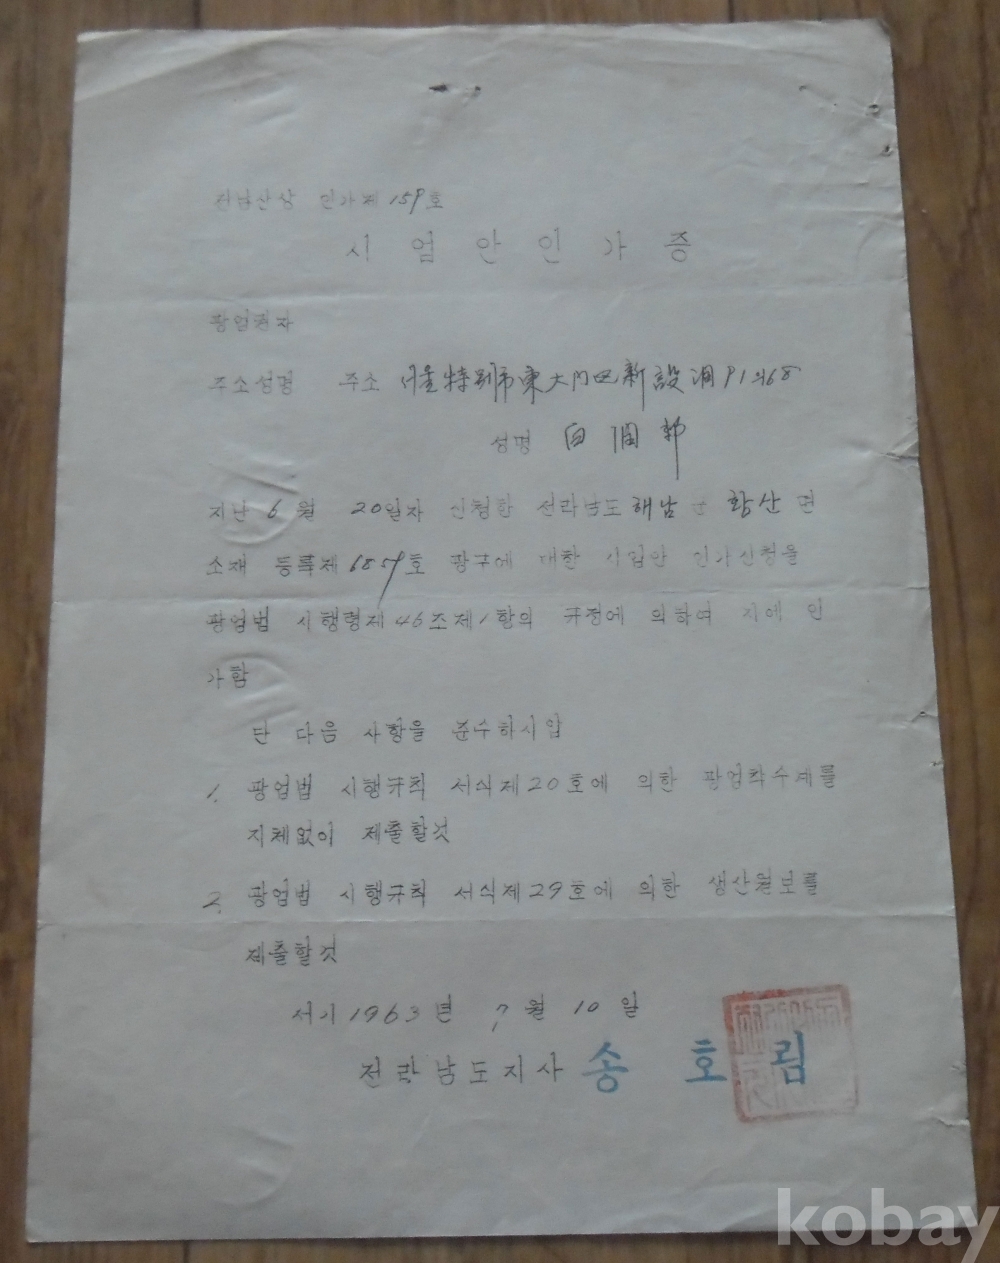 전남산상 인가제 159호
시업안인가증
광업권자
주소성명 주소 서울特別市東大門區新設洞 91의68
성명 白潤
지난 6월 20일자 신청한 전라남도 해남군 황산면
소재 등록제6859호 광구에 대한 시업안 인가신청을
광업법 시행령제46조제1항의 규정에 의하여 지에 인
가함
단 다음 사항을 준수하시압
1. 광업법 시행규칙 서식제20호에 의한 광업착수계를
지체없이 제출할것
2. 광업법 시행규칙 서식제29호에 의한 생산월보를
제출할것
서기 1963년 7월 10일
전라남도지사 송호림
kobay